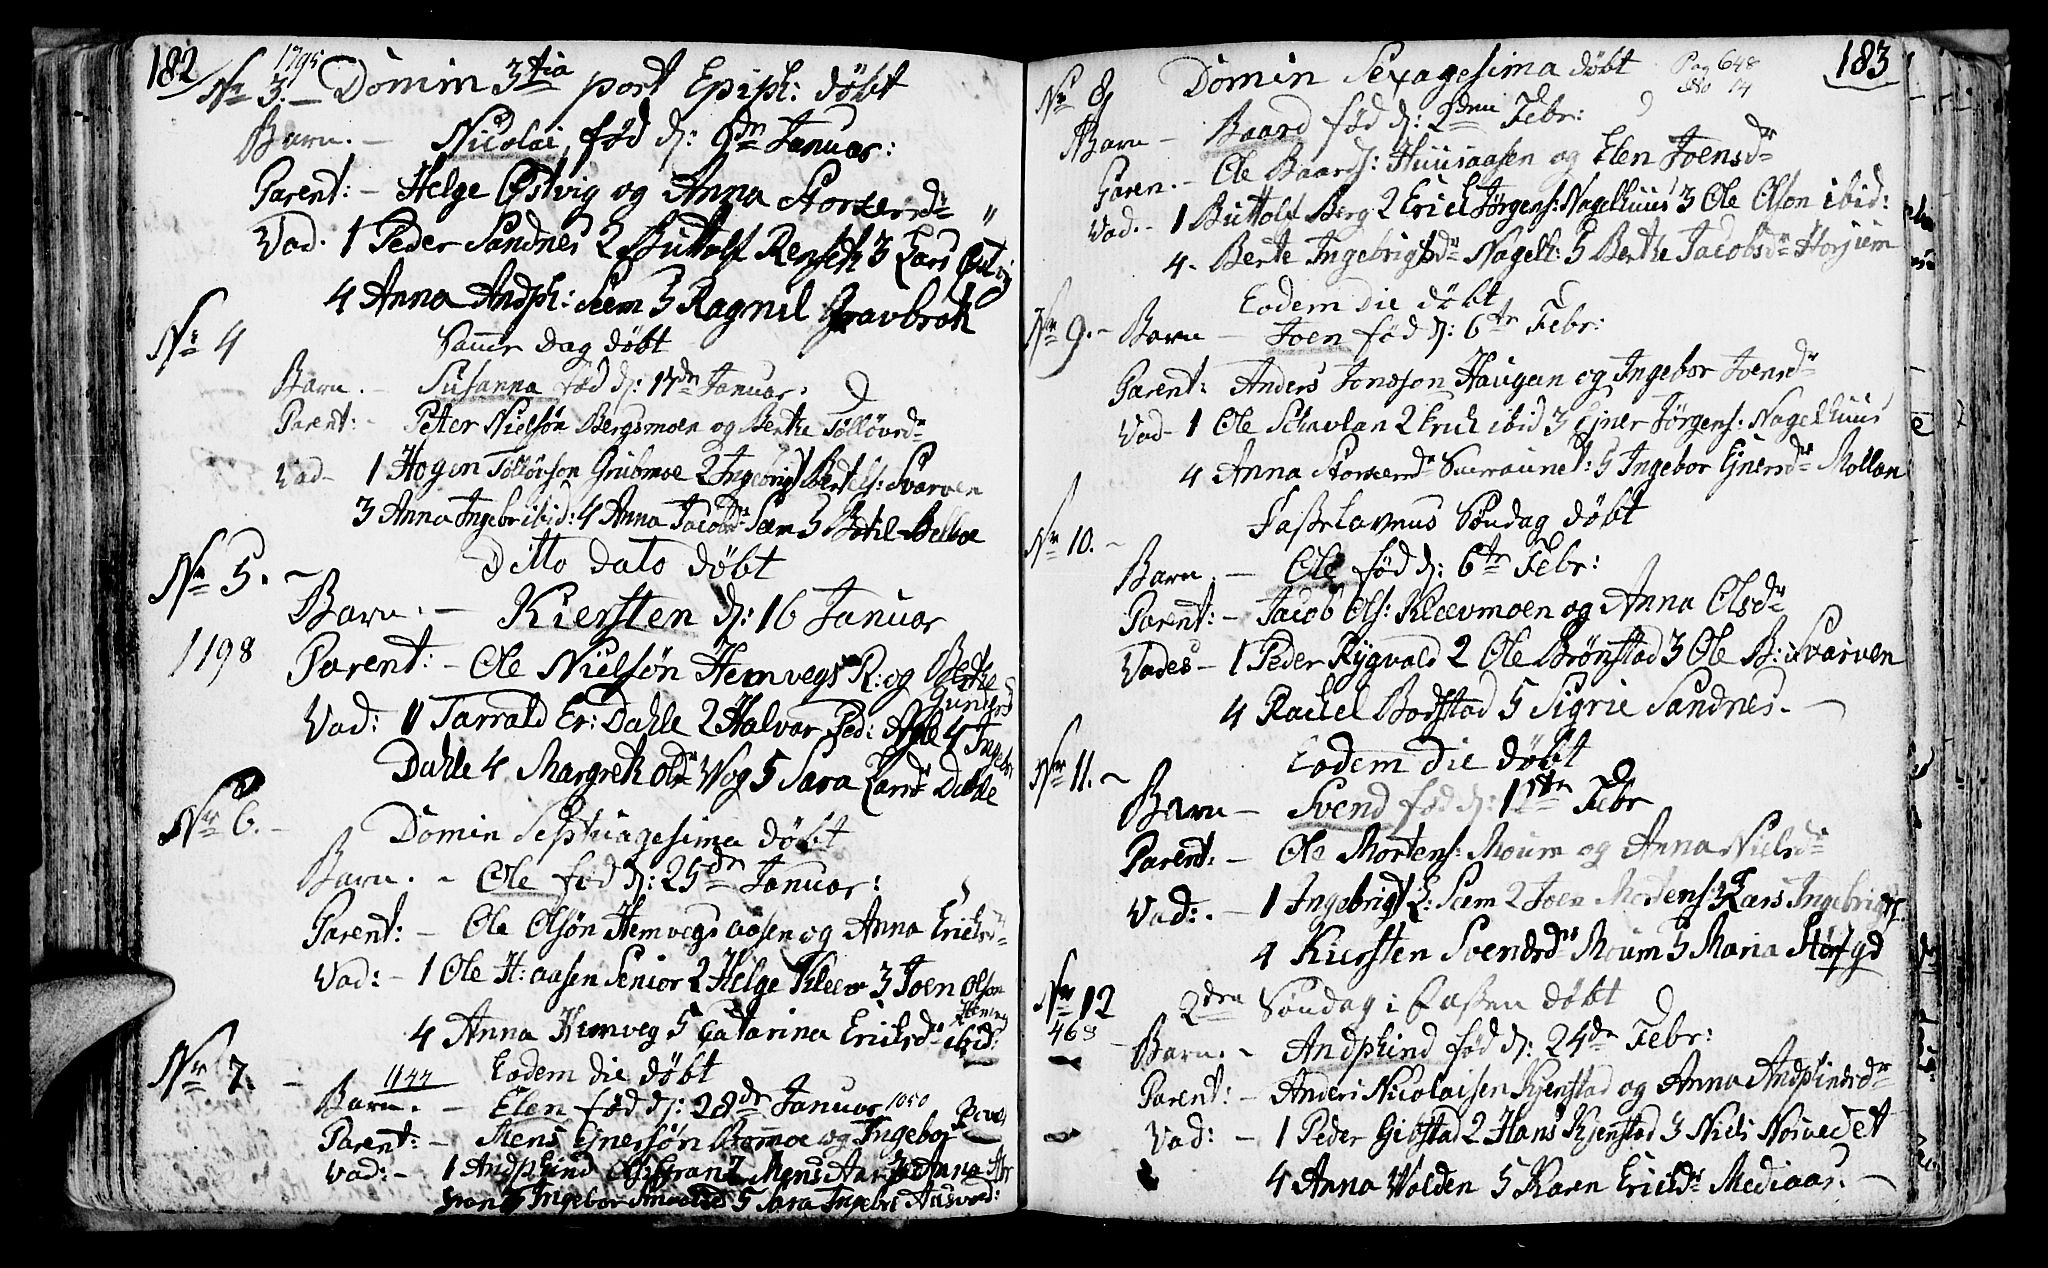 182
1795
No 3. — Domin 3tia post Epiph: døbt
Barn. — Nicolai, fød d: 9de Januar:
Parent: — Helge Østvig og Anna Storkersdr
Vad. 1 Peder Sandnes 2 Buttolf 3 Lars Østvig
4 Anna Andph: Seem 5 Ragnil Gravbrok
No 4 Samme Dag døbt
Barn. — Susanna fød d: 17de Januar:
Parent: — Peter Nielsøn Bergsmoen og Berthe Tollovsdr
Vad — 1 Hogen Tollovson Grubmoe 2 Ingebrigt Bertels: Svarven
3 Anna Ingebr ibid: 4 Anna Jacobsdr Seem 5 Botil Belboe
No 5. — Ditto dato døbt
Barn. — Kiersten d: 16 Januar
1198
Parent: — Ole Nielsøn Hemvegs R: og Berthe Gunersd
Vad: 1 Tarrald Er: Dahle 2 Halvor Ped: 4 Ingebr
Dahle 4 Margreth Olsdr Vog 5 Sara Larsdr Dahle
No 6. — Domin Septuagesima døbt
Barn. — Ole fød d: 25de Januar:
Parent: — Ole Olsøn Hemvegsaasen og Anna Ericksdr
Vad: — 1 Ole H:aasen Senior 2 Helge Kleev 3 Joen Olson
4 Anna Hemveg 5 Catarina Ericksdr ibid:
No 7. — Eodem die døbt
1144
Barn. — Elen fød d: 28de Januar 1050
Parent: — Mens Ejnersøn Bommoe og Ingebor
Vad: — 1 Andphind Gran 2 Mens 3 Anna
Gran 4 Ingebor 5 Sara Ingebr
183
No 8 Domin Sexagesima døbt Pag 648
No 14
Barn — Baard fød d: 2den Febr:
Paren. — Ole Baards: Huusaasen og Elen Joensdr
Vad. — 1 Buttolf Berg 2 Erick Jørgens: Nagelhuus 3 Ole Olson ibid:
4. Berte Ingebrigtsdr Nagelh: 5 Berthe Jacobsdr Horjem
Eodem die døbt
No 9. — Barn — Joen fød d: 6te Febr:
Parent: Anders Jonsson Haugan og Ingebor Joensdr
Vad — 1 Ole Schavlan 2 Erich ibid 3 Ejner Jørgens: Nagelhuus
4 Anna Storkersdr Surraunet: 5 Ingebor Ejnersdr Mollan
No 10. — Fastelavens Søndag døbt
Barn. — Ole fød d: 6te Febr:
Parent: — Jacob Ols: Kleevmoen og Anna Olsdr
Vades — 1 Peder Rygvold 2 Ole Brønstad 3 Ole B: Svarven
4 Rachel Bodstad 5 Sigrie Sandnes. —
No 11. — Eodem die døbt
Barn — Svend fød d: 17de Febr
Parent: — Ole Mortens: Moum og Anna Nielsdr
Vad: — 1 Ingebrigt L: Seem 2 Joen Mortens: 3 Lars Ingebrigts:
4 Kiersten Svendsdr Moum 5 Maria
No 12 2den Søndag i Fasten døbt
468
Barn. — Andphind fød d: 24de Febr:
Parent: — Anders Nicolaisen Kjenstad og Anna Andphindsdr
Vad: — 1 Peder Gibstad 2 Hans Kjenstad 3 Niels Norvedet
4 Anna Volden 5 Karn Ericksdr Mediaas. —